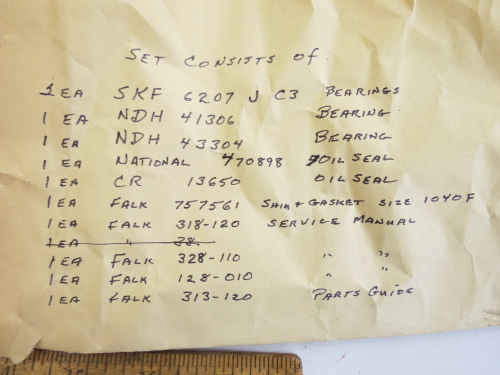 SET CONSISTS OF
2 EA SKF 6207 J C3 BEARINGS
1 EA NDH 41306 BEARING
1 EA NDH 43304 BEARING
1 EA NATIONAL 470898 OIL SEAL
1 EA CR 13650 OIL SEAL
1 EA FALK 757561 SHIM & GASKET SIZE 1040F
1 EA FALK 318-120 SERVICE MANUAL
1 EA " 38
1 EA FALK 328-110 " "
1 EA FALK 128-010 " "
1 EA FALK 313-120 PARTS GUIDE